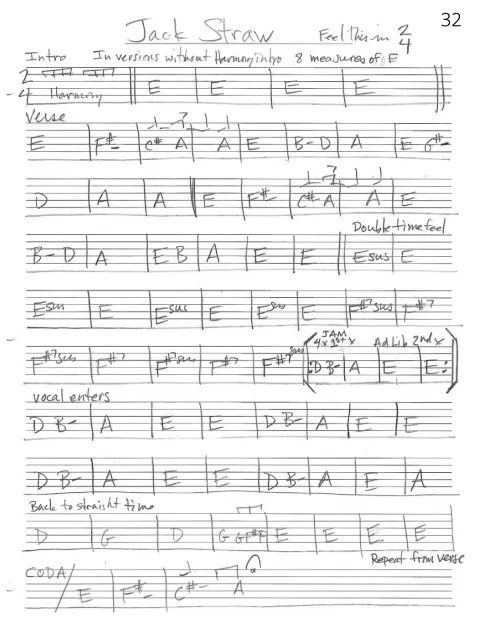 32
Jack Straw Feel this in 2/4
Intro In versions without Harmony intro 8 measures of E
2/4 Harmony E E E E
Verse
E F#- C# A A E B- D A E G#-
D A A E F#- C# A A E
Double time feel
B- D A E B A E E Esus E
Esus E Esus E Esus E F#7sus F#7
JAM 4x 1st x Ad Lib 2nd x
F#7sus F#7 F#7sus F#7 F#7sus D B- A E E
vocal enters
D B- A E E D B- A E E
D B- A E E D B- A E A
Back to straight time
D G D G G F# F E E E E
Repeat from verse
CODA E F#- C#- A